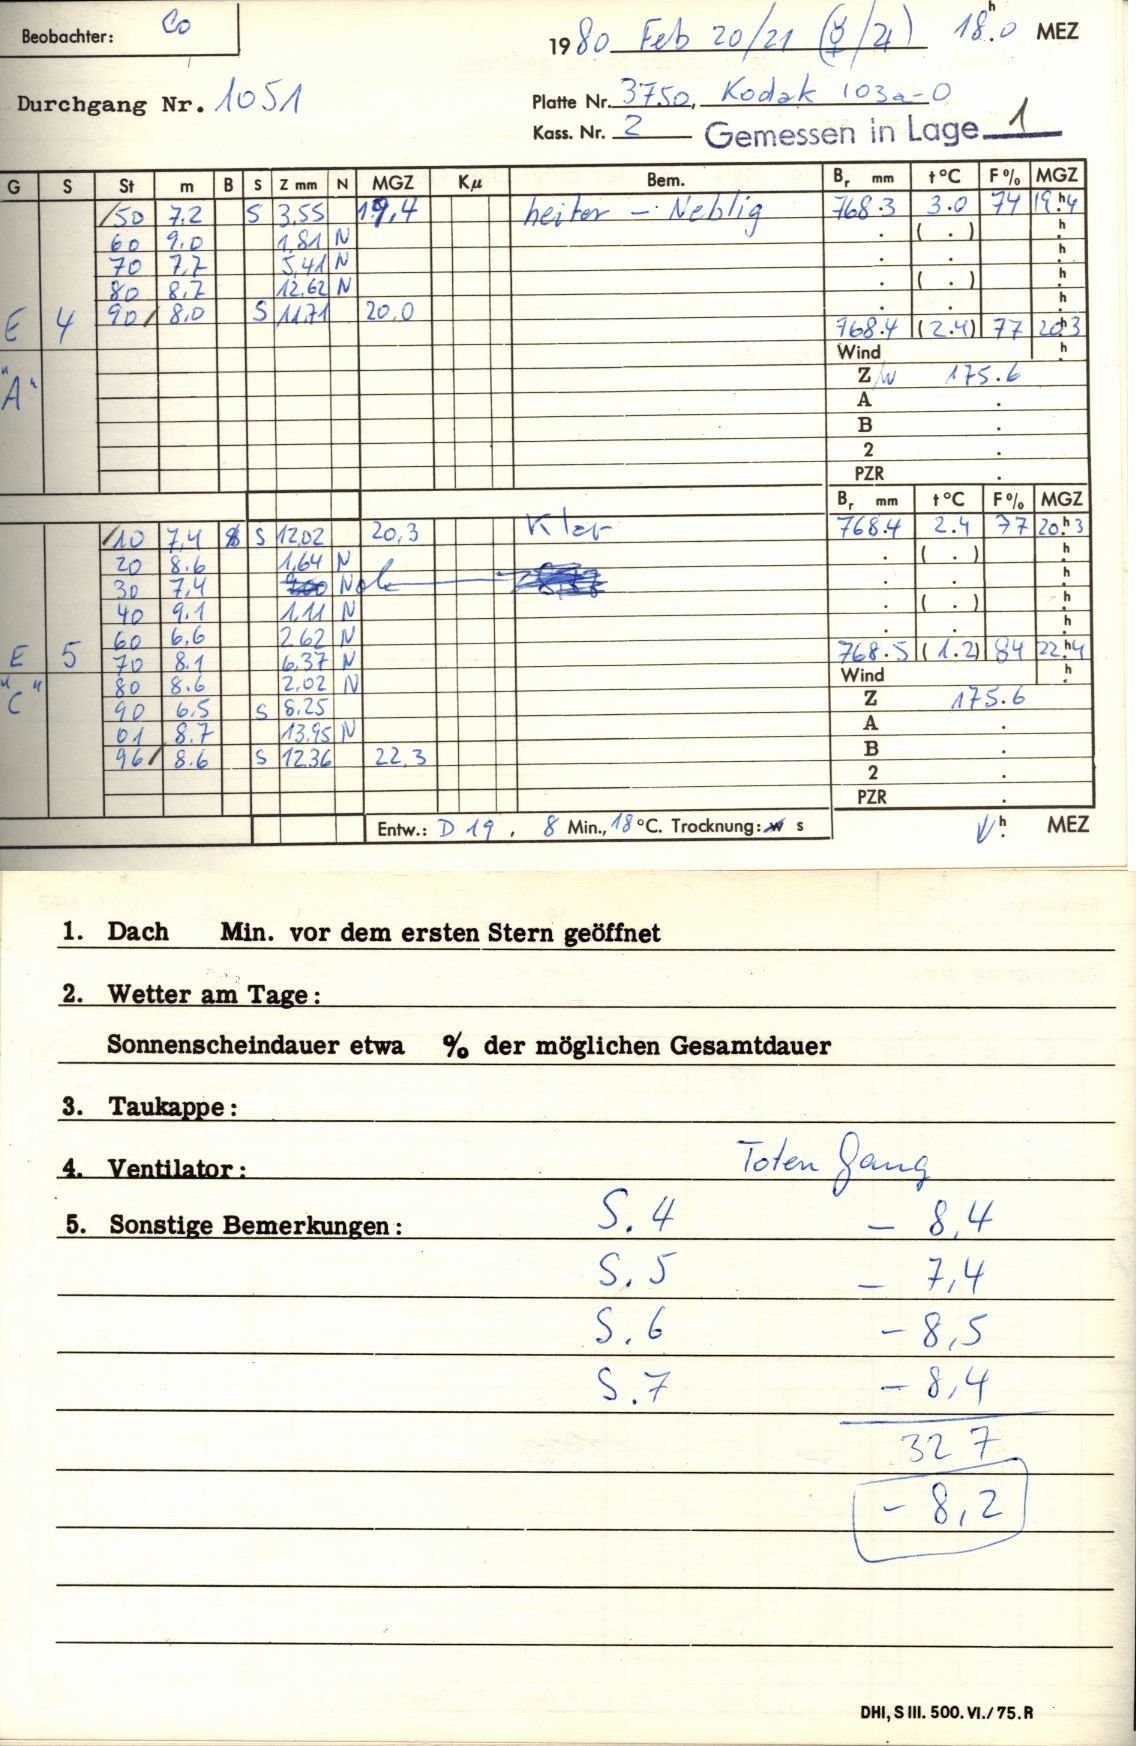 Beobachter: Co
1980 Feb 20/21 (☿/♃) 18h.0 MEZ
Durchgang Nr. 1051
Platte Nr. 3750, Kodak 103a-O
Kass. Nr. 2 Gemessen in Lage 1
G S St m B S Z mm N MGZ Kμ Bem. Br mm t°C F% MGZ
/50 7.2 S 3.55 19,4 heiter - Neblig 768.3 3.0 74 19h.4
60 9.0 1,81 N . ( . ) h
70 7,7 5,41 N . . h
80 8.7 12.62 N . ( . ) h
E 4 90/ 8,0 S 11.71 20.0 . . h
768.4 (2.4) 77 20h3
"A" Wind h
Z/w 175.6
A .
B .
2 .
PZR .
Br mm t°C F% MGZ
/10 7,4 S 12.02 20,3 Klar 768.4 2.4 77 20h.3
20 8.6 1,64 N . ( . ) h
30 7,4 N . . h
40 9.1 1,11 N . ( . ) h
60 6,6 2.62 N . . h
E 5 70 8.1 6.37 N 768.5 (1.2) 84 22h.4
"C" 80 8.6 2.02 N Wind h
90 6,5 S 8.25 Z 175.6
01 8.7 13.95 N A .
96/ 8.6 S 12.36 22,3 B .
2 .
PZR .
Entw.: D 19, 8 Min., 18°C. Trocknung: w s h. MEZ
1. Dach Min. vor dem ersten Stern geöffnet
2. Wetter am Tage:
Sonnenscheindauer etwa % der möglichen Gesamtdauer
3. Taukappe:
4. Ventilator: Toten Gang
5. Sonstige Bemerkungen: S. 4 - 8,4
S. 5 - 7,4
S. 6 - 8,5
S. 7 - 8,4
32 7
- 8,2
DHI, S III. 500. VI./75. R